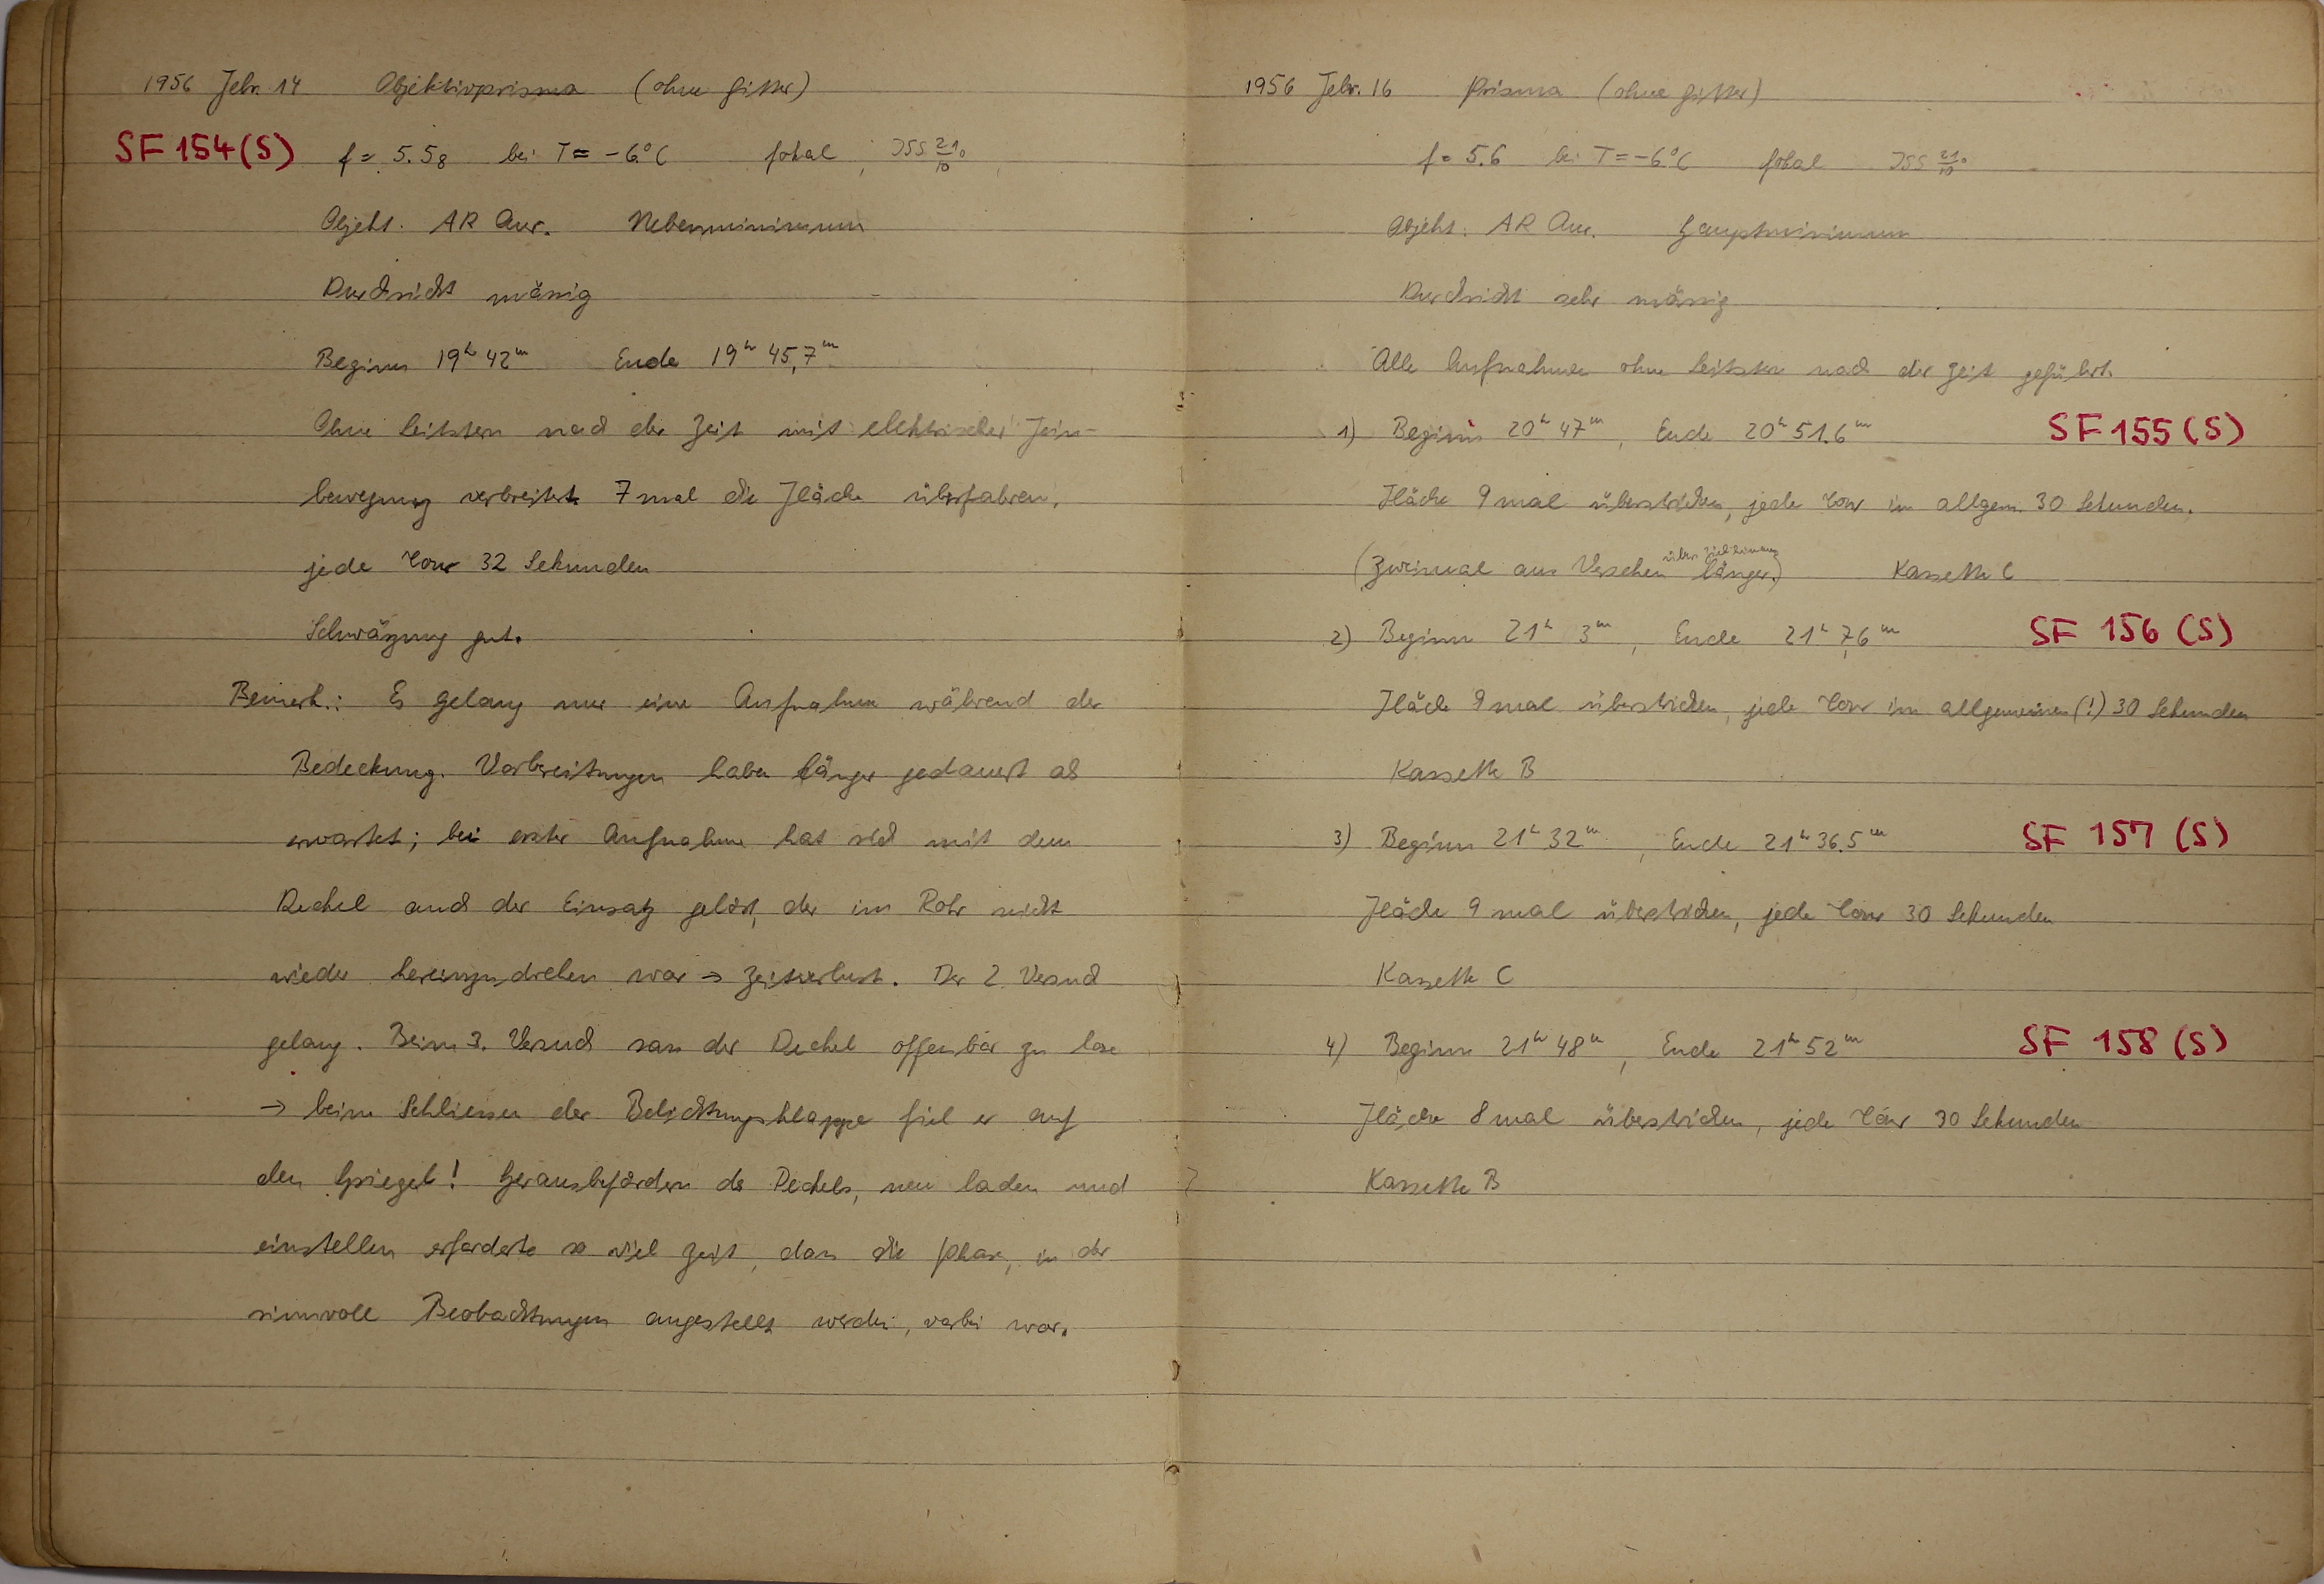 1956 Febr. 14 Objektivprisma (ohne Gitter)
SF 154 (S) f = 5.58 bei T = -6°C fokal, ISS 21°/10
Objekt. AR Aur. Nebenminimum
Durchsicht mässig
Beginn 19h 42m Ende 19h 45,7m
Ohne Leitstern nach der Zeit mit elektrischer Fein-
bewegung verbreitert 7 mal die Fläche überfahren,
jede Tour 32 Sekunden
Schwärzung gut.
Bemerk.: Es gelang nur eine Aufnahme während der
Bedeckung. Vorbereitungen haben länger gedauert als
erwartet; bei erster Aufnahme hat sich mit dem
Deckel auch der Einsatz gelöst, der im Rohr nicht
wieder hereinzudrehen war → Zeitverlust. Der 2. Versuch
gelang. Beim 3. Versuch sass der Deckel offenbar zu lose
→ beim Schliessen der Belichtungsklappe fiel er auf
den Spiegel! Herausbefördern des Deckels, neu laden und
einstellen erforderte so viel Zeit, dass die Phase, in der
sinnvoll Beobachtungen angestellt werden, vorbei war.
1956 Febr. 16 Prisma (ohne Gitter)
f = 5.6 bei T = -6°C fokal ISS 21°/10
Objekt: AR Aur. Hauptminimum
Durchsicht sehr mässig
Alle Aufnahmen ohne Leitstern nach der Zeit geführt.
1) Beginn 20h 47m, Ende 20h 51.6m SF 155 (S)
Fläche 9 mal überstrichen, jede Tour im allgem. 30 Sekunden.
(Zweimal aus Versehen länger.) Kassette C
2) Beginn 21h 3m, Ende 21h 7,6m SF 156 (S)
Fläche 9 mal überstrichen, jede Tour im allgemeinen (!) 30 Sekunden
Kassette B
3) Beginn 21h 32m, Ende 21h 36.5m SF 157 (S)
Fläche 9 mal überstrichen, jede Tour 30 Sekunden
Kassette C
4) Beginn 21h 48m, Ende 21h 52m SF 158 (S)
Fläche 8 mal überstrichen, jede Tour 30 Sekunden
Kassette B